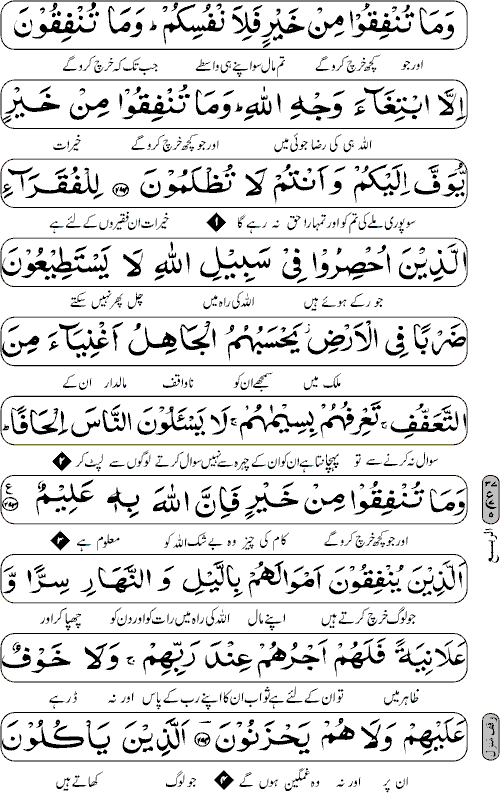 وَمَا تُنْفِقُوْا مِنْ خَيْرٍ فَلِاَنْفُسِكُمْ ؕ وَمَا تُنْفِقُوْنَ
اور جو کچھ خرچ کرو گے تم مال سو اپنے ہی واسطے جب تک کہ خرچ کرو گے
اِلَّا ابْتِغَآءَ وَجْهِ اللّٰهِ ؕ وَمَا تُنْفِقُوْا مِنْ خَيْرٍ
اللہ ہی کی رضا جوئی میں اور جو کچھ خرچ کرو گے خیرات
يُّوَفَّ اِلَيْكُمْ وَاَنْتُمْ لَا تُظْلَمُوْنَ ﴿۲۷۲﴾ لِلْفُقَرَآءِ
سو پوری ملے گی تم کو اور تمہارا حق نہ رہے گا ۱ خیرات ان فقیروں کے لئے ہے
الَّذِيْنَ اُحْصِرُوْا فِيْ سَبِيْلِ اللّٰهِ لَا يَسْتَطِيْعُوْنَ
جو رکے ہوئے ہیں اللہ کی راہ میں چل پھر نہیں سکتے
ضَرْبًا فِي الْاَرْضِ ؗ يَحْسَبُهُمُ الْجَاهِلُ اَغْنِيَآءَ مِنَ
ملک میں سمجھے ان کو ناواقف مالدار ان کے
التَّعَفُّفِ ۚ تَعْرِفُهُمْ بِسِيْمٰهُمْ ۚ لَا يَسْـَٔلُوْنَ النَّاسَ اِلْحَافًا ؕ
سوال نہ کرنے سے تو پہچانتا ہے ان کو ان کے چہرہ سے نہیں سوال کرتے لوگوں سے لپٹ کر ۲
وَمَا تُنْفِقُوْا مِنْ خَيْرٍ فَاِنَّ اللّٰهَ بِهٖ عَلِيْمٌ ﴿۲۷۳﴾ ع
اور جو کچھ خرچ کرو گے کام کی چیز وہ بے شک اللہ کو معلوم ہے ۳
اَلَّذِيْنَ يُنْفِقُوْنَ اَمْوَالَهُمْ بِالَّيْلِ وَالنَّهَارِ سِرًّا وَّ
جو لوگ خرچ کرتے ہیں اپنے مال اللہ کی راہ میں رات کو اور دن کو چھپا کر اور
عَلَانِيَةً فَلَهُمْ اَجْرُهُمْ عِنْدَ رَبِّهِمْ ۚ وَلَا خَوْفٌ
ظاہر میں تو ان کے لئے ہے ثواب ان کا اپنے رب کے پاس اور نہ ڈر ہے
عَلَيْهِمْ وَلَا هُمْ يَحْزَنُوْنَ ﴿۲۷۴﴾ اَلَّذِيْنَ يَاْكُلُوْنَ
ان پر اور نہ وہ غمگین ہوں گے ۴ جو لوگ کھاتے ہیں